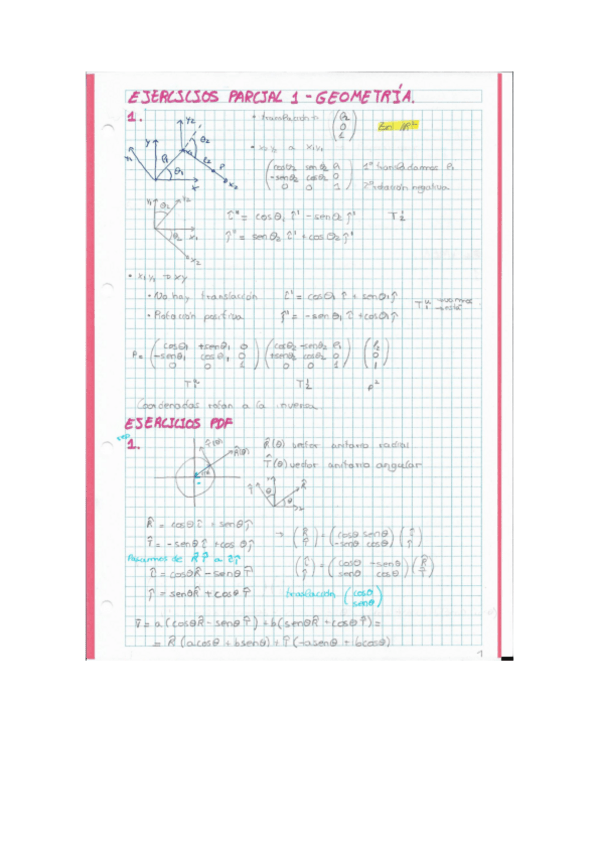 EJERCICIOS PARCIAL 1 - GEOMETRÍA.
1.
• translación
En ℝ²
• x₂y₂ a x₁y₁
(cosθ₂ senθ₂ P₁
-senθ₂ cosθ₂ 0
0 0 1)
1º transladamos P₁
2º rotación negativa
î'' = cosθ₂ î' - senθ₂ ĵ'
ĵ'' = senθ₂ î' + cosθ₂ ĵ'
• x₁y₁ → xy
• No hay translación î' = cosθ₁ î + senθ₁ ĵ
• Rotación positiva ĵ' = -senθ₁ î + cosθ₁ ĵ
(cosθ₁ +senθ₁ 0
-senθ₁ cosθ₁ 0
0 0 1)
(cosθ₂ -senθ₂ P₁
+senθ₂ cosθ₂ 0
0 0 1)
(P₂
0
1)
P²
Coordenadas rotan a la inversa
EJERCICIOS PDF
1.
R̂(θ) vector unitario radial
T̂(θ) vector unitario angular
R̂ = cosθ î + senθ ĵ
T̂ = -senθ î + cosθ ĵ
→ (R̂ T̂) = (cosθ senθ -senθ cosθ) (î ĵ)
Pasamos de R̂T̂ a îĵ
(î ĵ) = (cosθ -senθ senθ cosθ) (R̂ T̂)
î = cosθR̂ - senθT̂
ĵ = senθR̂ + cosθT̂
translación (cosθ senθ)
v̄ = a(cosθR̂ - senθT̂) + b(senθR̂ + cosθT̂) =
= R̂(acosθ + bsenθ) + T̂(-asenθ + bcosθ)
1